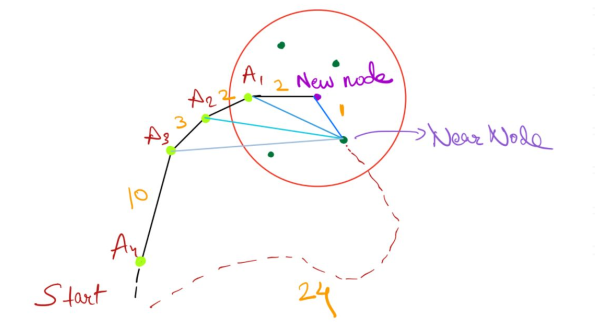 A1
2
New node
A2
2
1
A3
3
Near Node
10
A4
Start
24